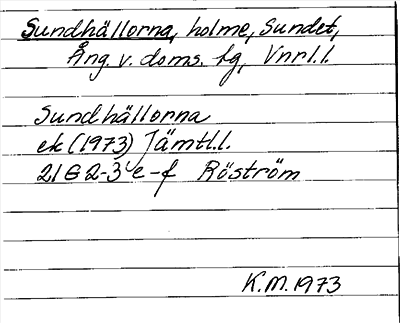 Sundhällorna, holme, Sundet,
Ång. v. doms. lg, Vnrl.l.
Sundhällorna
ek (1973) Jämtl.l.
21G 2-3 e-f Röström
K.M. 1973